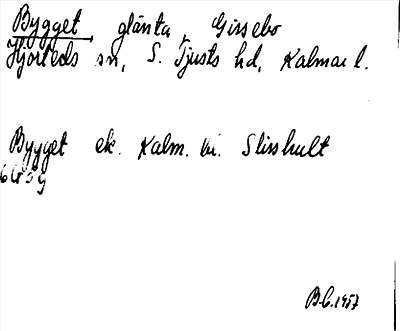 Bygget, glänta, Gissebo
Hjorteds sn, S. Tjusts hd, Kalmar l.
Bygget ek. Kalm. bl. Slisshult
B.C. 1957